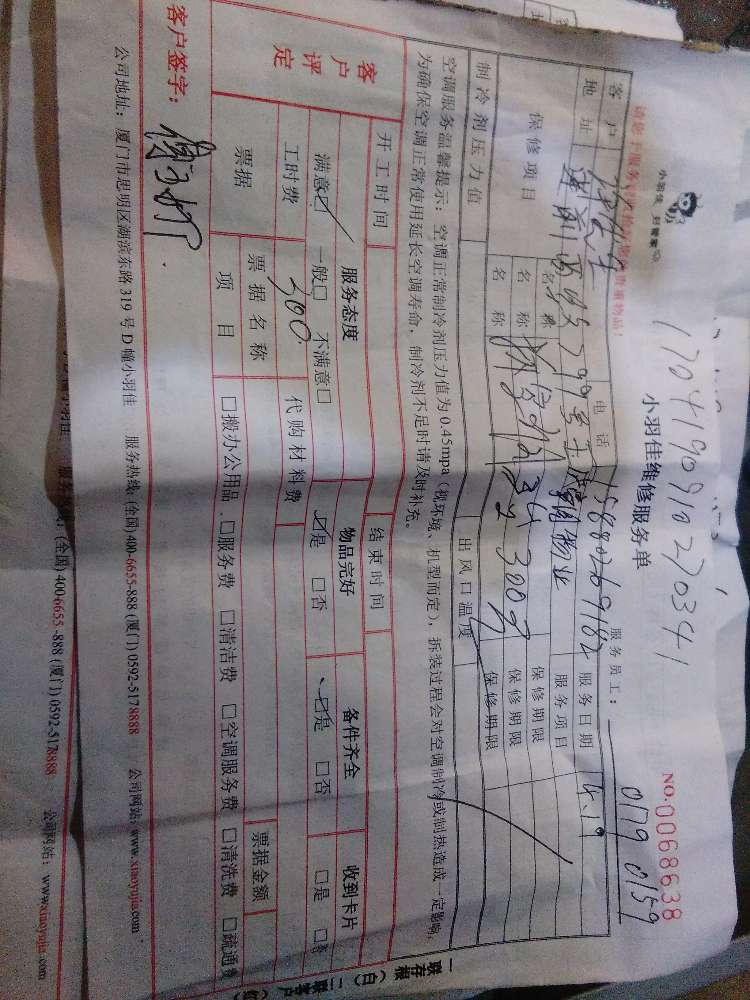 小羽佳 好管家
17041909102703​41
小羽佳维修服务单
NO.0068638
服务员工： 0179 0159
客户 电话 15880269182 服务日期 4.19
地址 服务项目
保修项目 名称 保修期限
名称 300g 保修期限
名称 保修期限
制冷剂压力值 出风口温度
空调服务温馨提示：空调正常制冷剂压力值为0.45mpa（视环境、机型而定），拆装过程会对空调制冷或制热造成一定影响，
为确保空调正常使用延长空调寿命，制冷剂不足时请及时补充。
开工时间 结束时间
客户评定 服务态度 物品完好 备件齐全 收到卡片
满意□ 一般□ 不满意□ □是 □否 □是 □否 □是
工时费 200 代购材料费
票据 票据名称 票据金额
项目 □搬办公用品 □服务费 □清洁费 □空调服务费 □清洗费 □疏通费
客户签字：
公司地址：厦门市思明区湖滨东路319号D幢小羽佳 服务热线：(全国)400-6655-888 (厦门)0592-5178888 公司网站：www.xiaoyujia.com
(全国)400-6655-888 (厦门)0592-5178888 公司网站：www.xiaoyujia.com